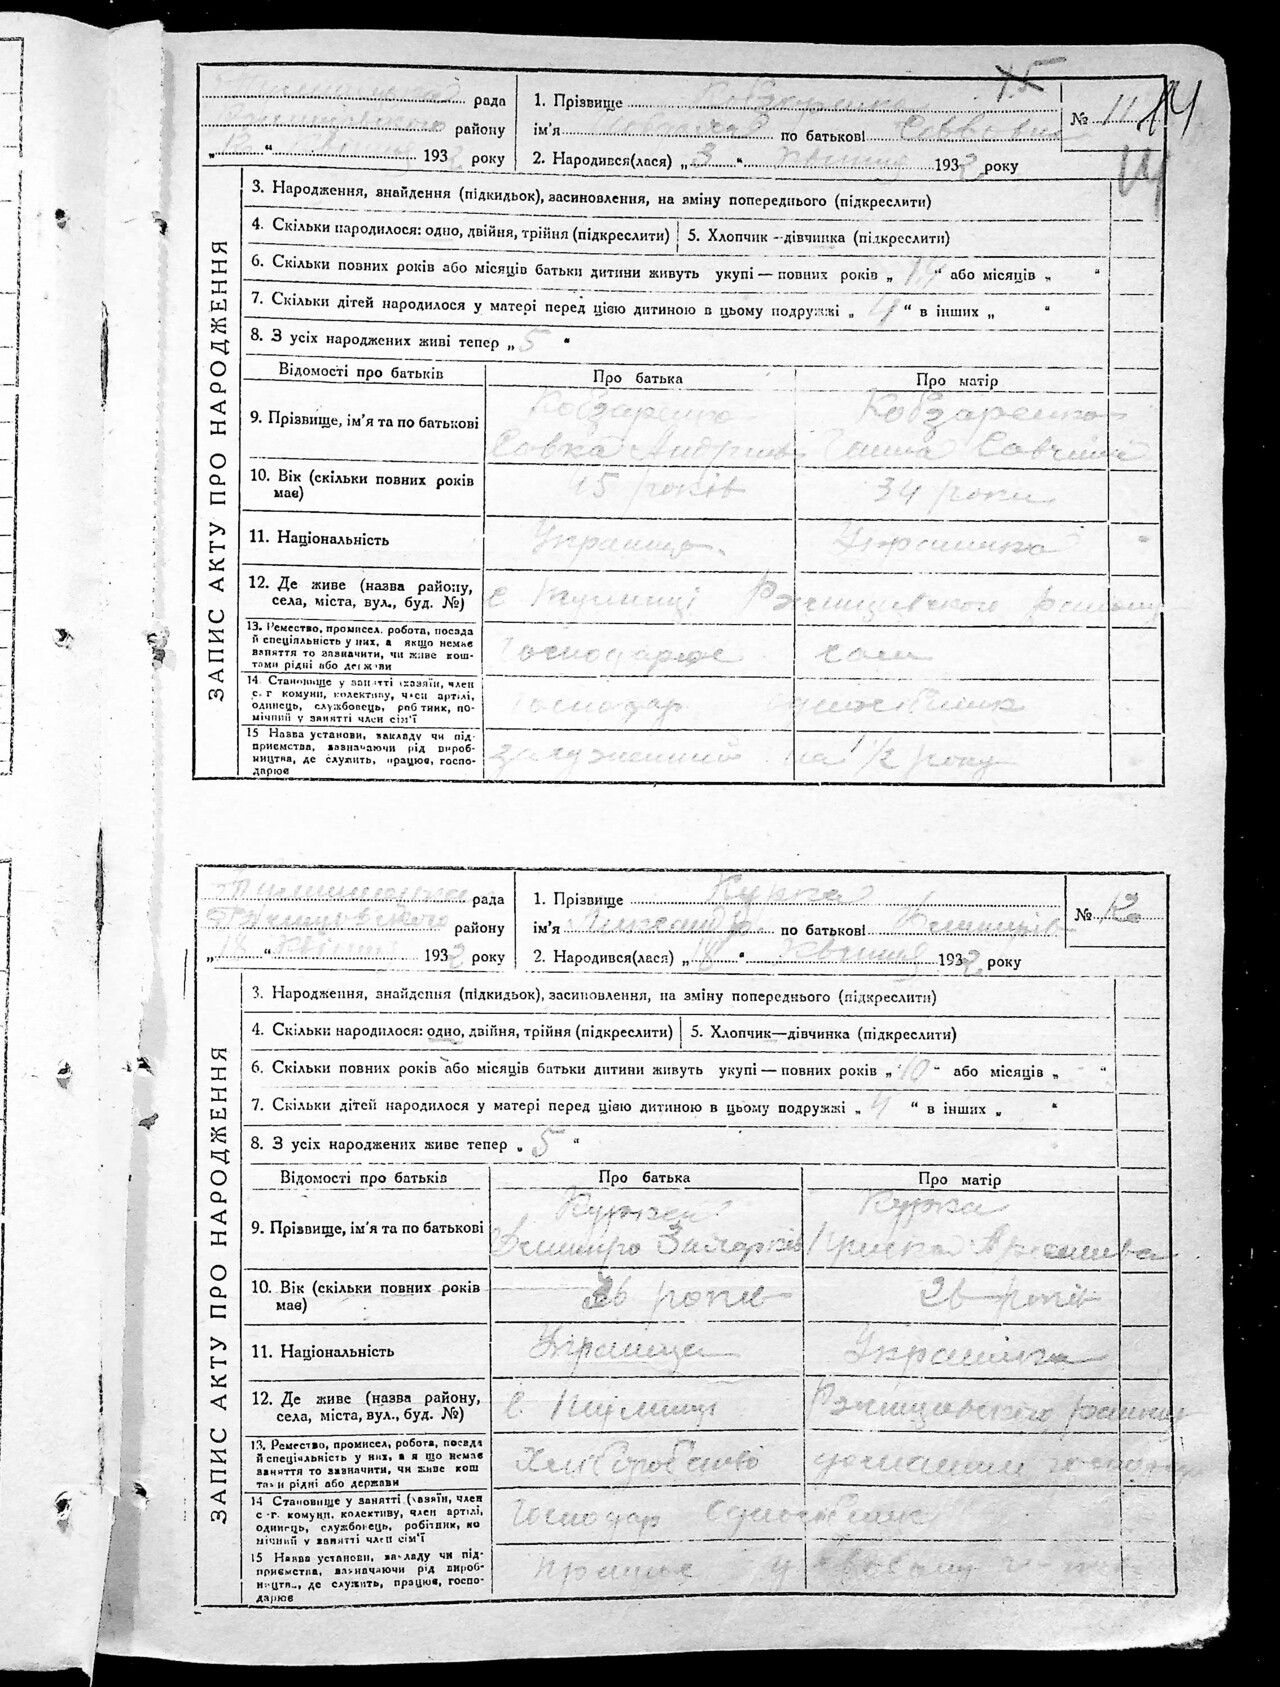 15
рада
1. Прізвище
№ 11 14
району
ім'я по батькові Савовна
„12“ квітня 1932 року
2. Народився(лася) „3“ квітня 1932 року
ЗАПИС АКТУ ПРО НАРОДЖЕННЯ
3. Народження, знайдення (підкидьок), засиновлення, на зміну попереднього (підкреслити)
4. Скільки народилося: одно, двійня, трійня (підкреслити) 5. Хлопчик - дівчинка (підкреслити)
6. Скільки повних років або місяців батьки дитини живуть укупі — повних років „14“ або місяців „ “
7. Скільки дітей народилося у матері перед цією дитиною в цьому подружжі „4“ в інших „ “
8. З усіх народжених живі тепер „5“
Відомості про батьків Про батька Про матір
9. Прізвище, ім'я та по батькові
Кобзаренко Кобзаренко
Савка Андрієв Ганна
10. Вік (скільки повних років має)
45 років 34 роки
11. Національність
Українець Українка
12. Де живе (назва району, села, міста, вул., буд. №)
с Пиїмниці Ржищевського району
13. Ремество, промисел, робота, посада й спеціяльність у них, а якщо немає заняття то зазначити, чи живе коштами рідні або держави
Господарює сам
14. Становище у занятті (хазяїн, член с.-г комуни, колективу, член артілі, одинець, службовець, робітник, помічний у занятті член сім'ї
господар одноосібник
15 Назва установи, закладу чи підприємства, зазначаючи рід виробництва, де служить, працює, господарює
на 1/2 року
рада
1. Прізвище Курка
№ 12
Ржищевського району
ім'я Олександр по батькові Дмитрів
„18“ квітня 1932 року
2. Народився(лася) „18“ квітня 1932 року
ЗАПИС АКТУ ПРО НАРОДЖЕННЯ
3. Народження, знайдення (підкидьок), засиновлення, на зміну попереднього (підкреслити)
4. Скільки народилося: одно, двійня, трійня (підкреслити) 5. Хлопчик—дівчинка (підкреслити)
6. Скільки повних років або місяців батьки дитини живуть укупі — повних років „10“ або місяців „ “
7. Скільки дітей народилося у матері перед цією дитиною в цьому подружжі „4“ в інших „ “
8. З усіх народжених живе тепер „5“
Відомості про батьків Про батька Про матір
9. Прізвище, ім'я та по батькові
Курка Курка
Дмитро Захарків Приська
10. Вік (скільки повних років має)
36 років 26 років
11. Національність
Українець Українка
12. Де живе (назва району, села, міста, вул., буд. №)
с Пиїмниці Ржищевського району
13. Ремество, промисел, робота, посада й спеціяльність у них, а якщо немає заняття то зазначити, чи живе коштами рідні або держави
Хліборобство
14 Становище у занятті (хазяїн, член с.-г. комуни, колективу, член артілі, одинець, службовець, робітник, помічний у занятті член сім'ї
Господар одноосібник
15 Назва установи, закладу чи підприємства, зазначаючи рід виробництва, де служить, працює, господарює
працює у